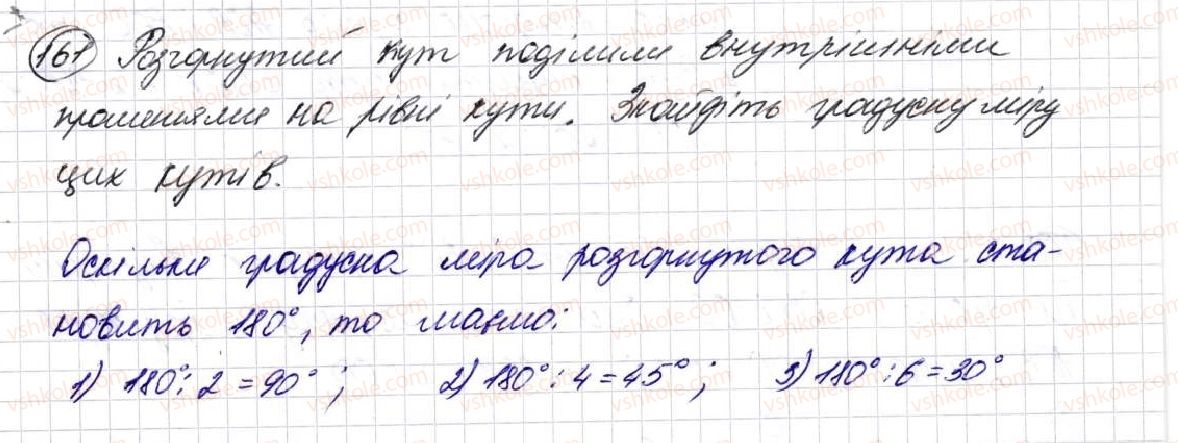 161 Розгорнутий кут поділили внутрішніми
променями на рівні кути. Знайдіть градусну міру
цих кутів.
Оскільки градусна міра розгорнутого кута ста-
новить 180°, то маємо:
1) 180° : 2 = 90° ; 2) 180° : 4 = 45° ; 3) 180° : 6 = 30°
vshkole.com